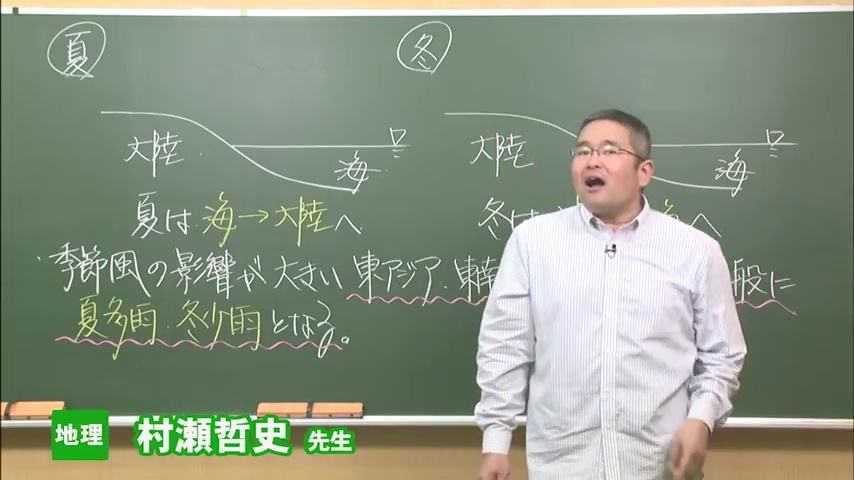 夏
冬
大陸
海
大陸
海
夏は 海→大陸へ
冬は
へ
季節風の影響が大きい 東アジア・東南
般に
夏多雨・冬少雨となる。
地理 村瀬哲史 先生